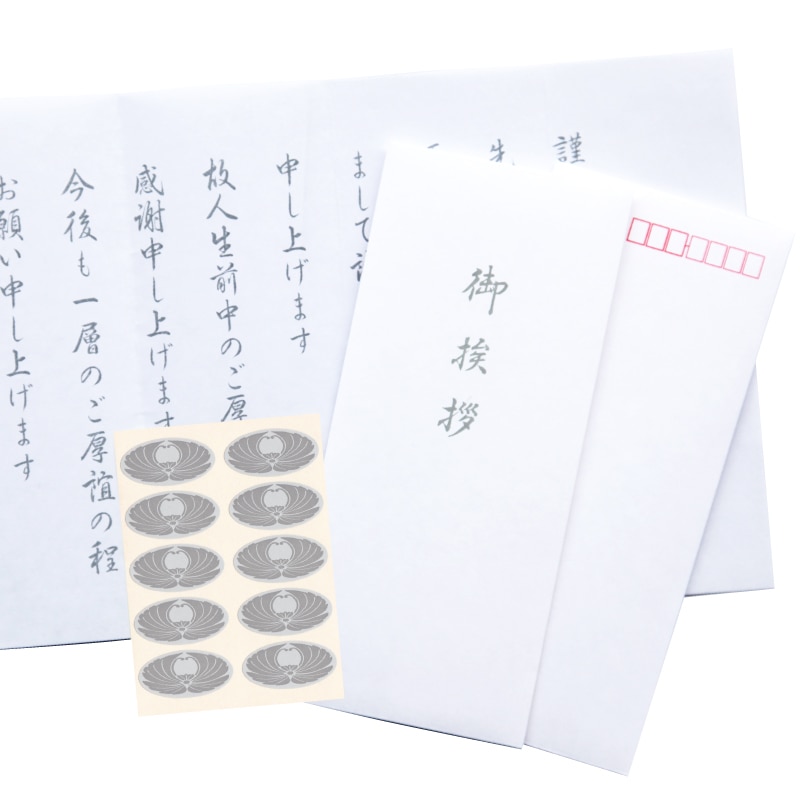 謹
先
まして
申し上げます
故人生前中のご厚
感謝申し上げます
今後も一層のご厚誼の程
お願い申し上げます
御挨拶